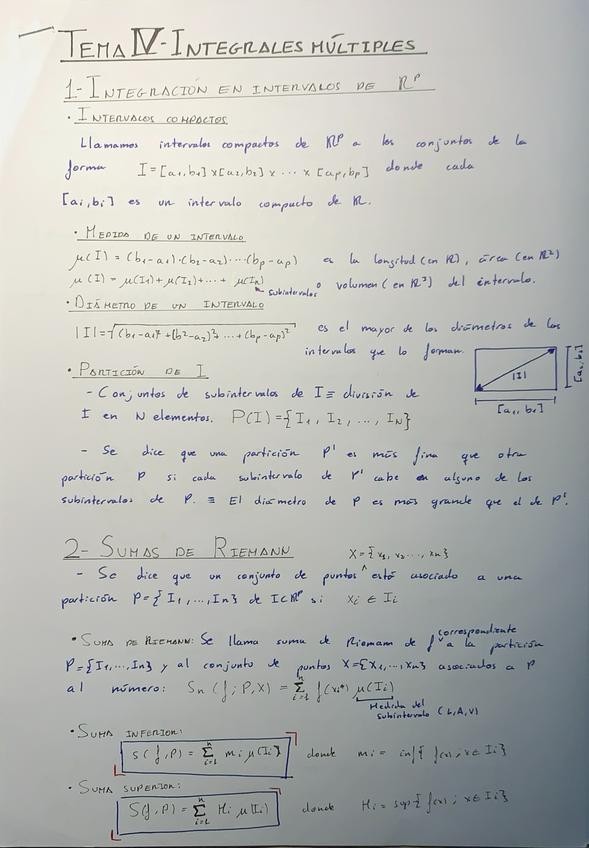 TEMA IV - INTEGRALES MÚLTIPLES
1.- INTEGRACIÓN EN INTERVALOS DE ℝᵖ
· INTERVALOS COMPACTOS
Llamamos intervalos compactos de ℝᵖ a los conjuntos de la
forma I = [a₁,b₁] x [a₂,b₂] x ··· x [aₚ,bₚ] donde cada
[aᵢ,bᵢ] es un intervalo compacto de ℝ.
· MEDIDA DE UN INTERVALO
μ(I) = (b₁-a₁)·(b₂-a₂)·...·(bₚ-aₚ) es la longitud (en ℝ), área (en ℝ²)
μ(I) = μ(I₁)+μ(I₂)+...+ μ(Iₙ) subintervalos o volumen (en ℝ³) del intervalo.
· DIÁMETRO DE UN INTERVALO
|I| = √((b₁-a₁)²+(b₂-a₂)²+...+(bₚ-aₚ)²) es el mayor de los diámetros de los
intervalos que lo forman.
|I|
[a₂,b₂]
[a₁,b₁]
· PARTICIÓN DE I
- Conjuntos de subintervalos de I ≡ división de
I en N elementos. P(I) = {I₁, I₂, ..., I_N}
- Se dice que una partición P' es más fina que otra
partición P si cada subintervalo de P' cabe en alguno de los
subintervalos de P. ≡ El diámetro de P es más grande que el de P'.
2- SUMAS DE RIEMANN X = {x₁, x₂..., xₙ}
- Se dice que un conjunto de puntos ^ está asociado a una
partición P = {I₁,...,Iₙ} de I⊂ℝᵖ si xᵢ ∈ Iᵢ
· SUMA DE RIEMANN: Se llama suma de Riemann de f correspondiente a la partición
P = {I₁,...,Iₙ} y al conjunto de puntos X={x₁,...,xₙ} asociados a P
al número: Sₙ (f; P, X) = Σᵢ₌₁ⁿ f(xᵢ*) μ(Iᵢ)
Medida del
subintervalo (L,A,V)
· SUMA INFERIOR:
s(f,P) = Σᵢ₌₁ⁿ mᵢ μ(Iᵢ) donde mᵢ = inf{ f(x); x∈Iᵢ}
· SUMA SUPERIOR:
S(f,P) = Σᵢ₌₁ⁿ Mᵢ μ(Iᵢ) donde Mᵢ = sup{ f(x); x∈Iᵢ}